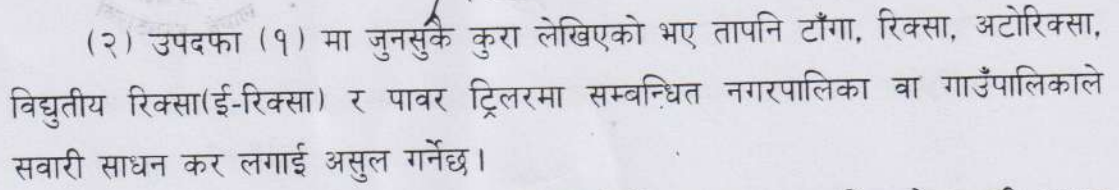 (२) उपदफा (१) मा जुनसुकै कुरा लेखिएको भए तापनि टाँगा, रिक्सा, अटोरिक्सा,
विद्युतीय रिक्सा(ई-रिक्सा) र पावर ट्रिलरमा सम्बन्धित नगरपालिका वा गाउँपालिकाले
सवारी साधन कर लगाई असुल गर्नेछ।